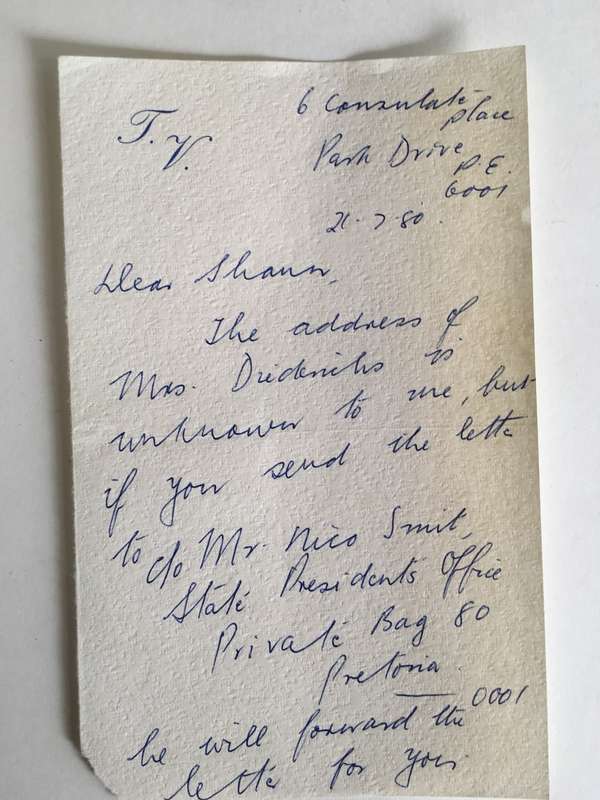 T.V.
6 Consulate
place
Park Drive
P.E.
6001
21.7.80.
Dear Shaun,
The address of
Mrs. Diederichs is
unknown to me, but
if you send the letter
to c/o Mr. Nico Smit,
State Presidents Office
Private Bag 80
Pretoria
0001
he will forward the
letter for you